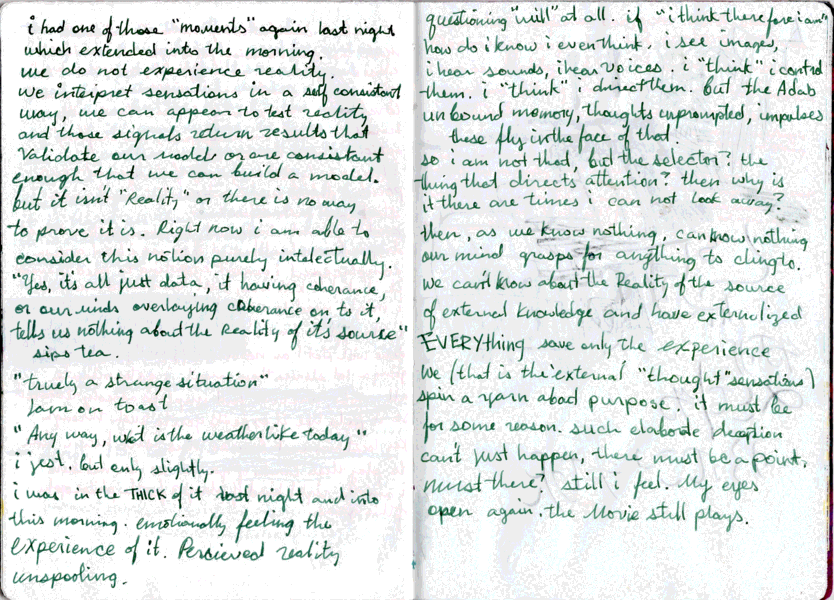 i had one of those "moments" again last night
which extended into the morning.
we do not experience reality.
we interpret sensations in a self consistant
way, we can appear to test reality
and those signals return results that
validate our model or are consistant
enough that we can build a model.
but it isn't "Reality" or there is no way
to prove it is. Right now i am able to
consider this notion purely intelectually.
"Yes, it's all just data, it having coherance,
or our minds overlaying coherance on to it,
tells us nothing about the Reality of it's source"
sips tea.
"truely a strange situation"
Jam on toast
"Any way, what is the weather like today"
i jest. but only slightly.
i was in the THICK of it last night and into
this morning. emotionally feeling the
experience of it. Percieved reality
unspooling.
questioning "will" at all. if "i think therefore i am"
how do i know i even think. i see images,
i hear sounds, i hear voices. i "think" i control
them. i "think" i direct them. but the
unbound memory, thoughts unprompted, impulses
these fly in the face of that.
so i am not that, but the selector? the
thing that directs attention? then why is
it there are times i can not look away?
then, as we know nothing, can know nothing
our mind grasps for anything to cling to.
we can't know about the Reality of the source
of external knowledge and have externalized
EVERYthing save only the experience
we (that is the external "thought" sensations)
spin a yarn about purpose. it must be
for some reason. such elaborate deception
can't just happen, there must be a point,
must there? still i feel. My eyes
open again. the Movie still plays.